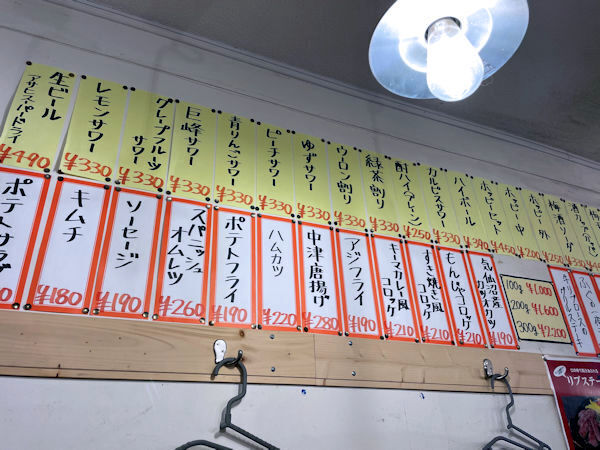 生ビール
アサヒスーパードライ
¥490
レモンサワー
¥330
グレープフルーツ
サワー
¥330
巨峰サワー
¥330
青りんごサワー
¥330
ピーチサワー
¥330
ゆずサワー
¥330
ウーロン割り
¥330
緑茶割り
¥330
酎ハイ(プレーン)
¥250
カルピスサワー
¥330
ハイボール
¥390
ホッピーセット
¥450
ホッピー 中
¥200
ホッピー 外
¥250
梅酒ソーダ
ポテトサラダ
キムチ
¥180
ソーセージ
¥190
スパニッシュ
オムレツ
¥260
ポテトフライ
¥190
ハムカツ
¥220
中津唐揚げ
¥280
アジフライ
¥190
エースカレー風
コロッケ
¥210
すき焼き風
コロッケ
¥210
もんじゃコロッケ
¥210
気仙沼産
カツオカツ
¥190
100g ¥1,000
200g ¥1,600
300g ¥2,200
リブステー